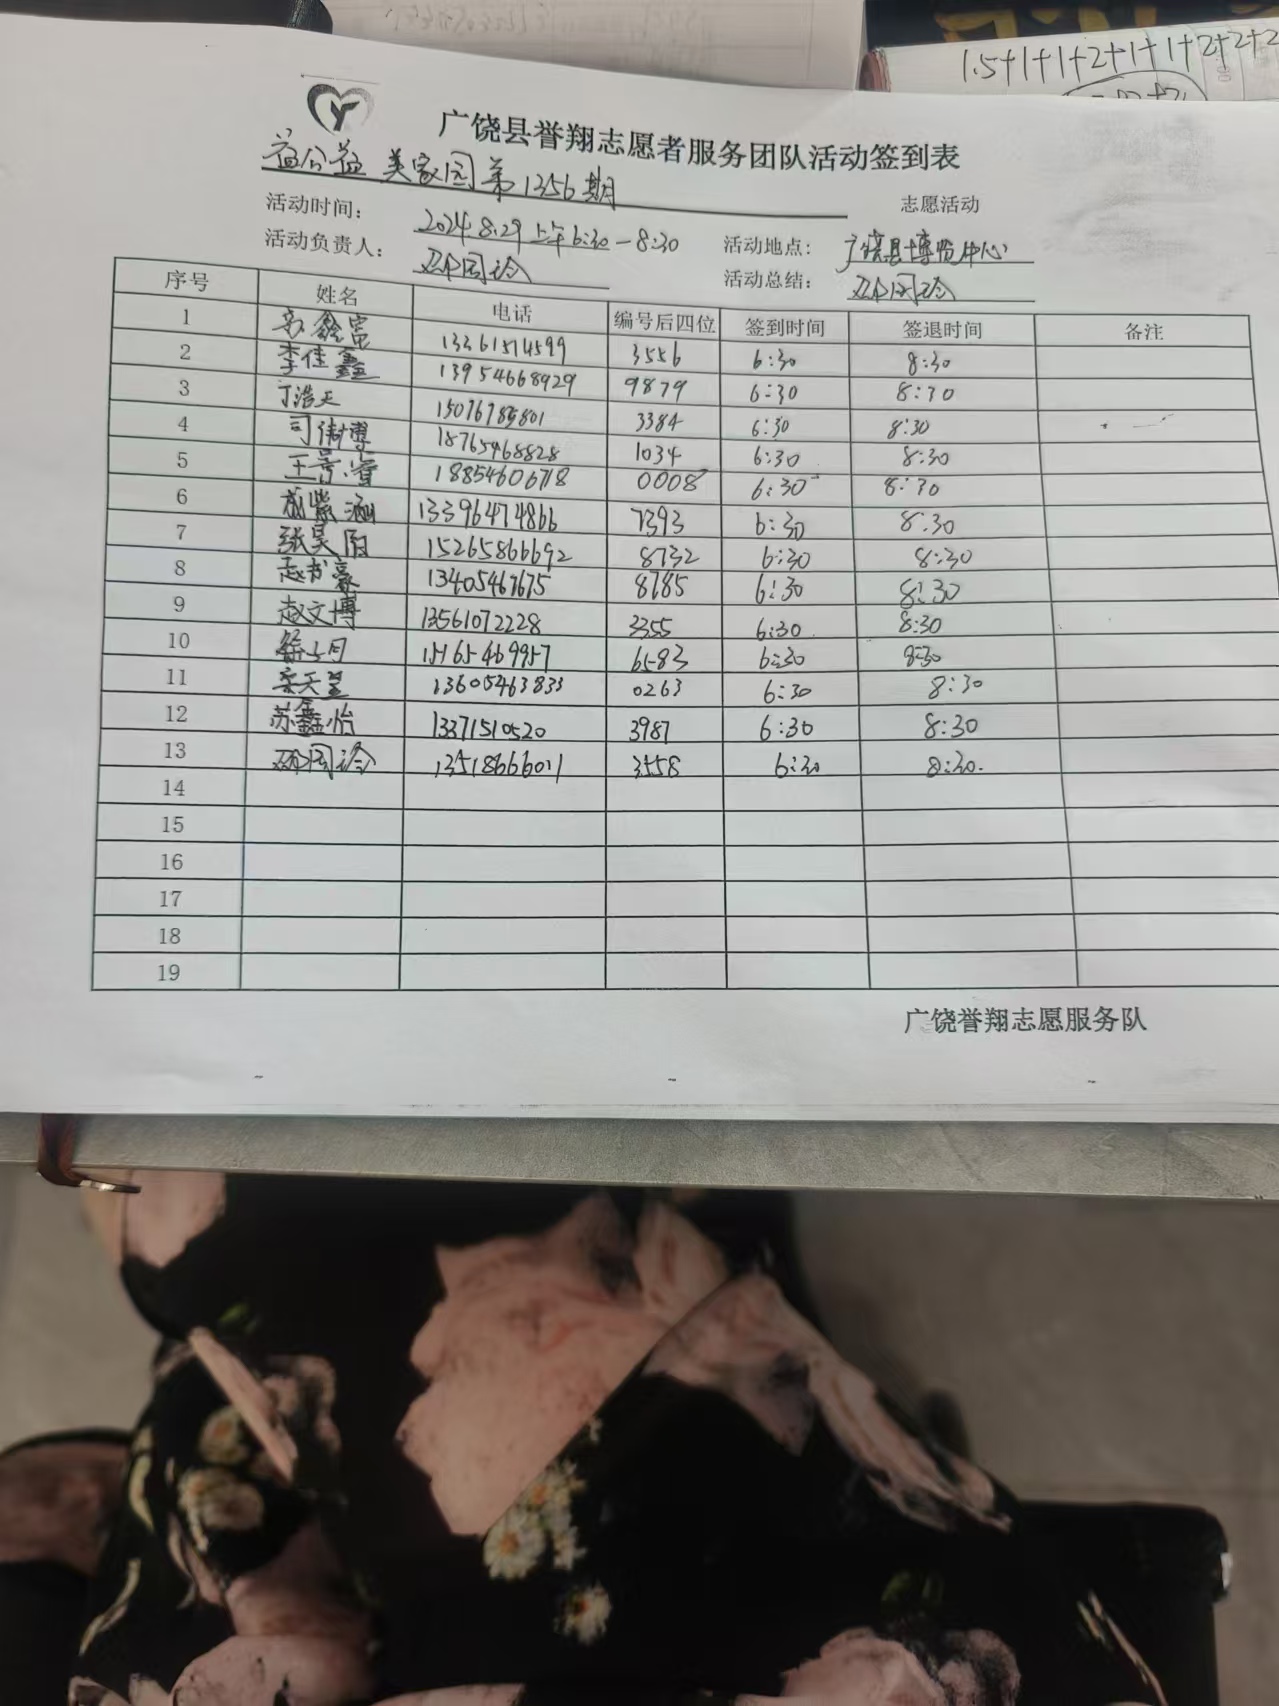 1.5+1+1+2+1+1+2+2+2
广饶县誉翔志愿者服务团队活动签到表
益公益 美家园第1356期 志愿活动
活动时间: 2024.8.29 上午6:30-8:30 活动地点: 广饶县博览中心
活动负责人: 邓国玲 活动总结: 邓国玲
序号 姓名 电话 编号后四位 签到时间 签退时间 备注
1 鑫富 13361514599 3556 6:30 8:30
2 李佳鑫 13954668929 9879 6:30 8:30
3 丁浩天 15076789801 3384 6:30 8:30
4 司伟博 18765468828 1034 6:30 8:30
5 王景睿 18854606718 0008 6:30 8:30
6 紫涵 13396474866 7393 6:30 8:30
7 张昊雨 15265866692 8732 6:30 8:30
8 赵书豪 13405467675 8785 6:30 8:30
9 赵文博 13561072228 3355 6:30 8:30
10 15165469957 6583 6:30 8:30
11 13605463833 0263 6:30 8:30
12 苏鑫怡 13371510520 3987 6:30 8:30
13 邓国玲 13518666011 3558 6:30 8:30.
14
15
16
17
18
19
广饶誉翔志愿服务队